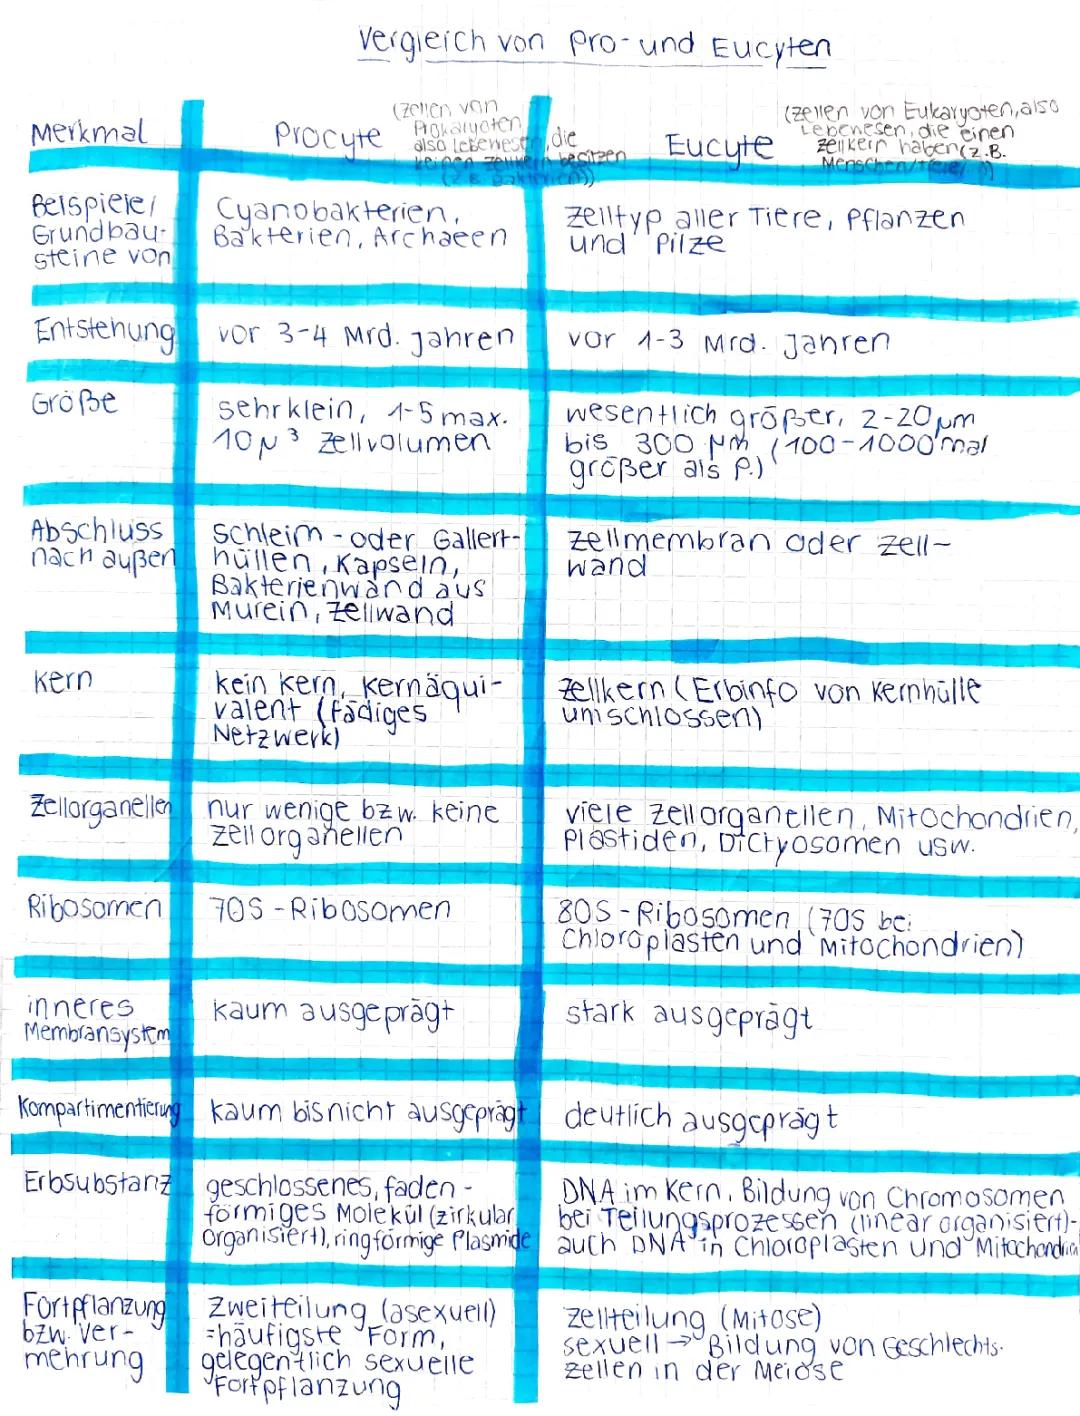 Vergleich von Pro- und Eucyten
Merkmal
Procyte
(Zellen von
Prokaryoten
also Lebewesen, die
keinen Zellkern besitzen
(z.B. Bakterien))
Eucyte
(Zellen von Eukaryoten, also
Lebewesen, die einen
Zellkern haben (z.B.
Menschen/Tiere/...))
Beispiele/
Grundbau-
steine von
Cyanobakterien,
Bakterien, Archaeen
Zelltyp aller Tiere, Pflanzen
und Pilze
Entstehung
vor 3-4 Mrd. Jahren
vor 1-3 Mrd. Jahren
Größe
sehr klein, 1-5 max.
10 µ³ Zellvolumen
wesentlich größer, 2-20 µm
bis 300 µm (100-1000 mal
größer als P.)
Abschluss
nach außen
Schleim- oder Gallert-
hüllen, Kapseln,
Bakterienwand aus
Murein, Zellwand
Zellmembran oder Zell-
wand
Kern
kein Kern, Kernäqui-
valent (fädiges
Netzwerk)
Zellkern (Erbinfo von Kernhülle
umschlossen)
Zellorganellen
nur wenige bzw. keine
Zellorganellen
viele Zellorganellen, Mitochondrien,
Plastiden, Dictyosomen usw.
Ribosomen
70S-Ribosomen
80S-Ribosomen (70S bei
Chloroplasten und Mitochondrien)
inneres
Membransystem
kaum ausgeprägt
stark ausgeprägt
Kompartimentierung
kaum bis nicht ausgeprägt
deutlich ausgeprägt
Erbsubstanz
geschlossenes, faden-
förmiges Molekül (zirkular
organisiert), ringförmige Plasmide
DNA im Kern, Bildung von Chromosomen
bei Teilungsprozessen (linear organisiert)-
auch DNA in Chloroplasten und Mitochondrien
Fortpflanzung
bzw. Ver-
mehrung
Zweiteilung (asexuell)
=häufigste Form,
gelegentlich sexuelle
Fortpflanzung
Zellteilung (Mitose)
sexuell → Bildung von Geschlechts-
zellen in der Meiose